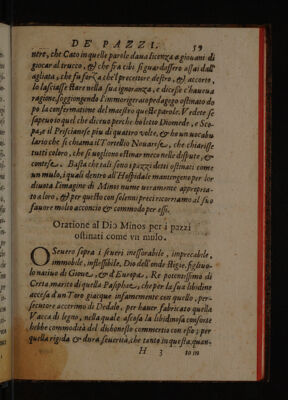 DE PAZZI. 59
ntro, che Cato in quelle parole dana licenza a giouani di
giocar al trucco, & che fra cibi si guardassero assai dall'
agliata; che fu forza che'l precettore destro, & accorto,
lo lasciasse stare nella sua ignoranza, e dicesse c'haueua
ragione, soggiongendo l'immorigerato pedagogo ostinato do
po la confermatione del maestro queste parole. Vedete se
sapeuo io quel che diceuo perche ho letto Diomede, e Sci-
pa, e il Priscianese piu di quattro volte, & ho un vocabu
lario che si chiama il Tortellio Nouarese, che chiarisse
tutti coloro, che si uogliono ostinar meco nelle dispute, &
contese. Basta che tali sono i pazzi detti ostinati come
un mulo, i quali dentro all'Hospidale mantengono per lor
diuota l'imagine di Minos nume ueramente appropria-
to a loro, & per questo con solenni preci ricorriamo al suo
fauore molto acconcio & commodo per essi.
Oratione al Dio Minos per i pazzi
ostinati come vn mulo.
O Seuero sopra i seueri inessorabile, imprecabile,
immobile, inflessibile, Dio dell'onde stigie, figliuo-
lo natiuo di Gioue, & d'Europa, Re potentissimo di
Creta, marito di quella Pasiphae, che per la sua libidine
accesa d'un Toro giacque infamemente con quello, per-
secutore accerimo di Dedalo, per hauer fabricato quella
Vacca di legno, nella quale ascosa la libidinosa consorte
hebbe commodità del dishonesto commertio con esso; per
quella rigida & dura seuerità, che tanto in questa, quan-
H 3 to in